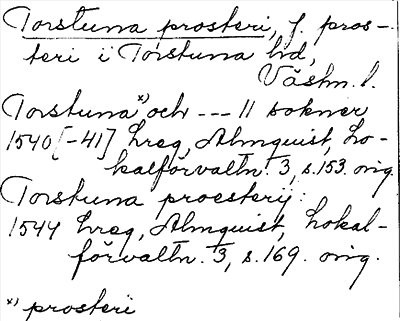 Torstuna prosteri, f. pros-
teri i Torstuna hd,
Västm. l.
Torstuna *) och --- 11 sokner
1540 [-41] hreg, Almquist, Lo-
kalförvaltn. 3, s. 153. orig.
Torstuna proesterij:
1544 hreg, Almquist, Lokal-
förvaltn. 3, s. 169. orig.
*) prosteri